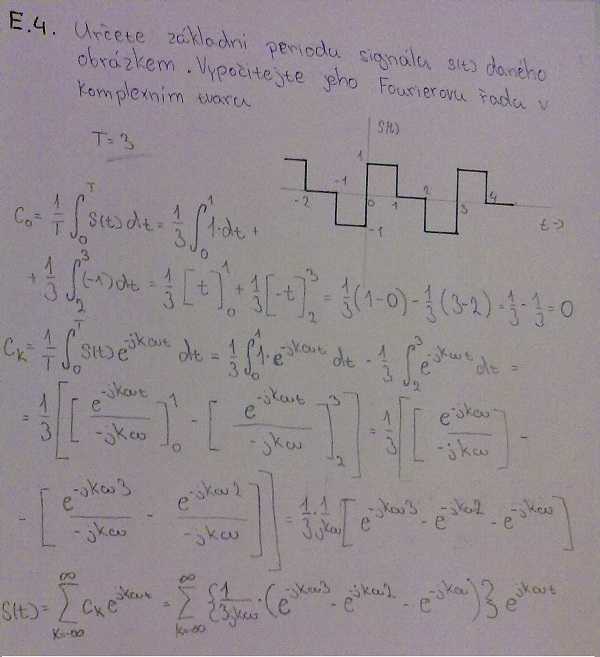 E.4. Určete základní periodu signálu s(t) daného
obrázkem. Vypočítejte jeho Fourierovu řadu v
komplexním tvaru
T = 3
S(t)
1
-2 -1 0 1 2 3 4
-1
t →
C₀ = 1/T ∫₀ᵀ S(t) dt = 1/3 ∫₀¹ 1·dt +
+ 1/3 ∫₂³ (-1) dt = 1/3 [t]₀¹ + 1/3 [-t]₂³ = 1/3 (1-0) - 1/3 (3-2) = 1/3 - 1/3 = 0
Cₖ = 1/T ∫₀ᵀ S(t) e^(-jkωt) dt = 1/3 ∫₀¹ 1·e^(-jkωt) dt - 1/3 ∫₂³ e^(-jkωt) dt =
= 1/3 [ [ e^(-jkωt) / -jkω ]₀¹ - [ e^(-jkωt) / -jkω ]₂³ ] = 1/3 [ [ e^(-jkω) / -jkω ] -
- [ e^(-jkω3) / -jkω - e^(-jkω2) / -jkω ] ] = 1/3 · 1/jkω [ e^(-jkω3) - e^(-jkω2) - e^(-jkω) ]
S(t) = ∑_{k=-∞}^{∞} Cₖ e^(jkωt) = ∑_{k=-∞}^{∞} { 1/3jkω · ( e^(-jkω3) - e^(-jkω2) - e^(-jkω) ) } e^(jkωt)